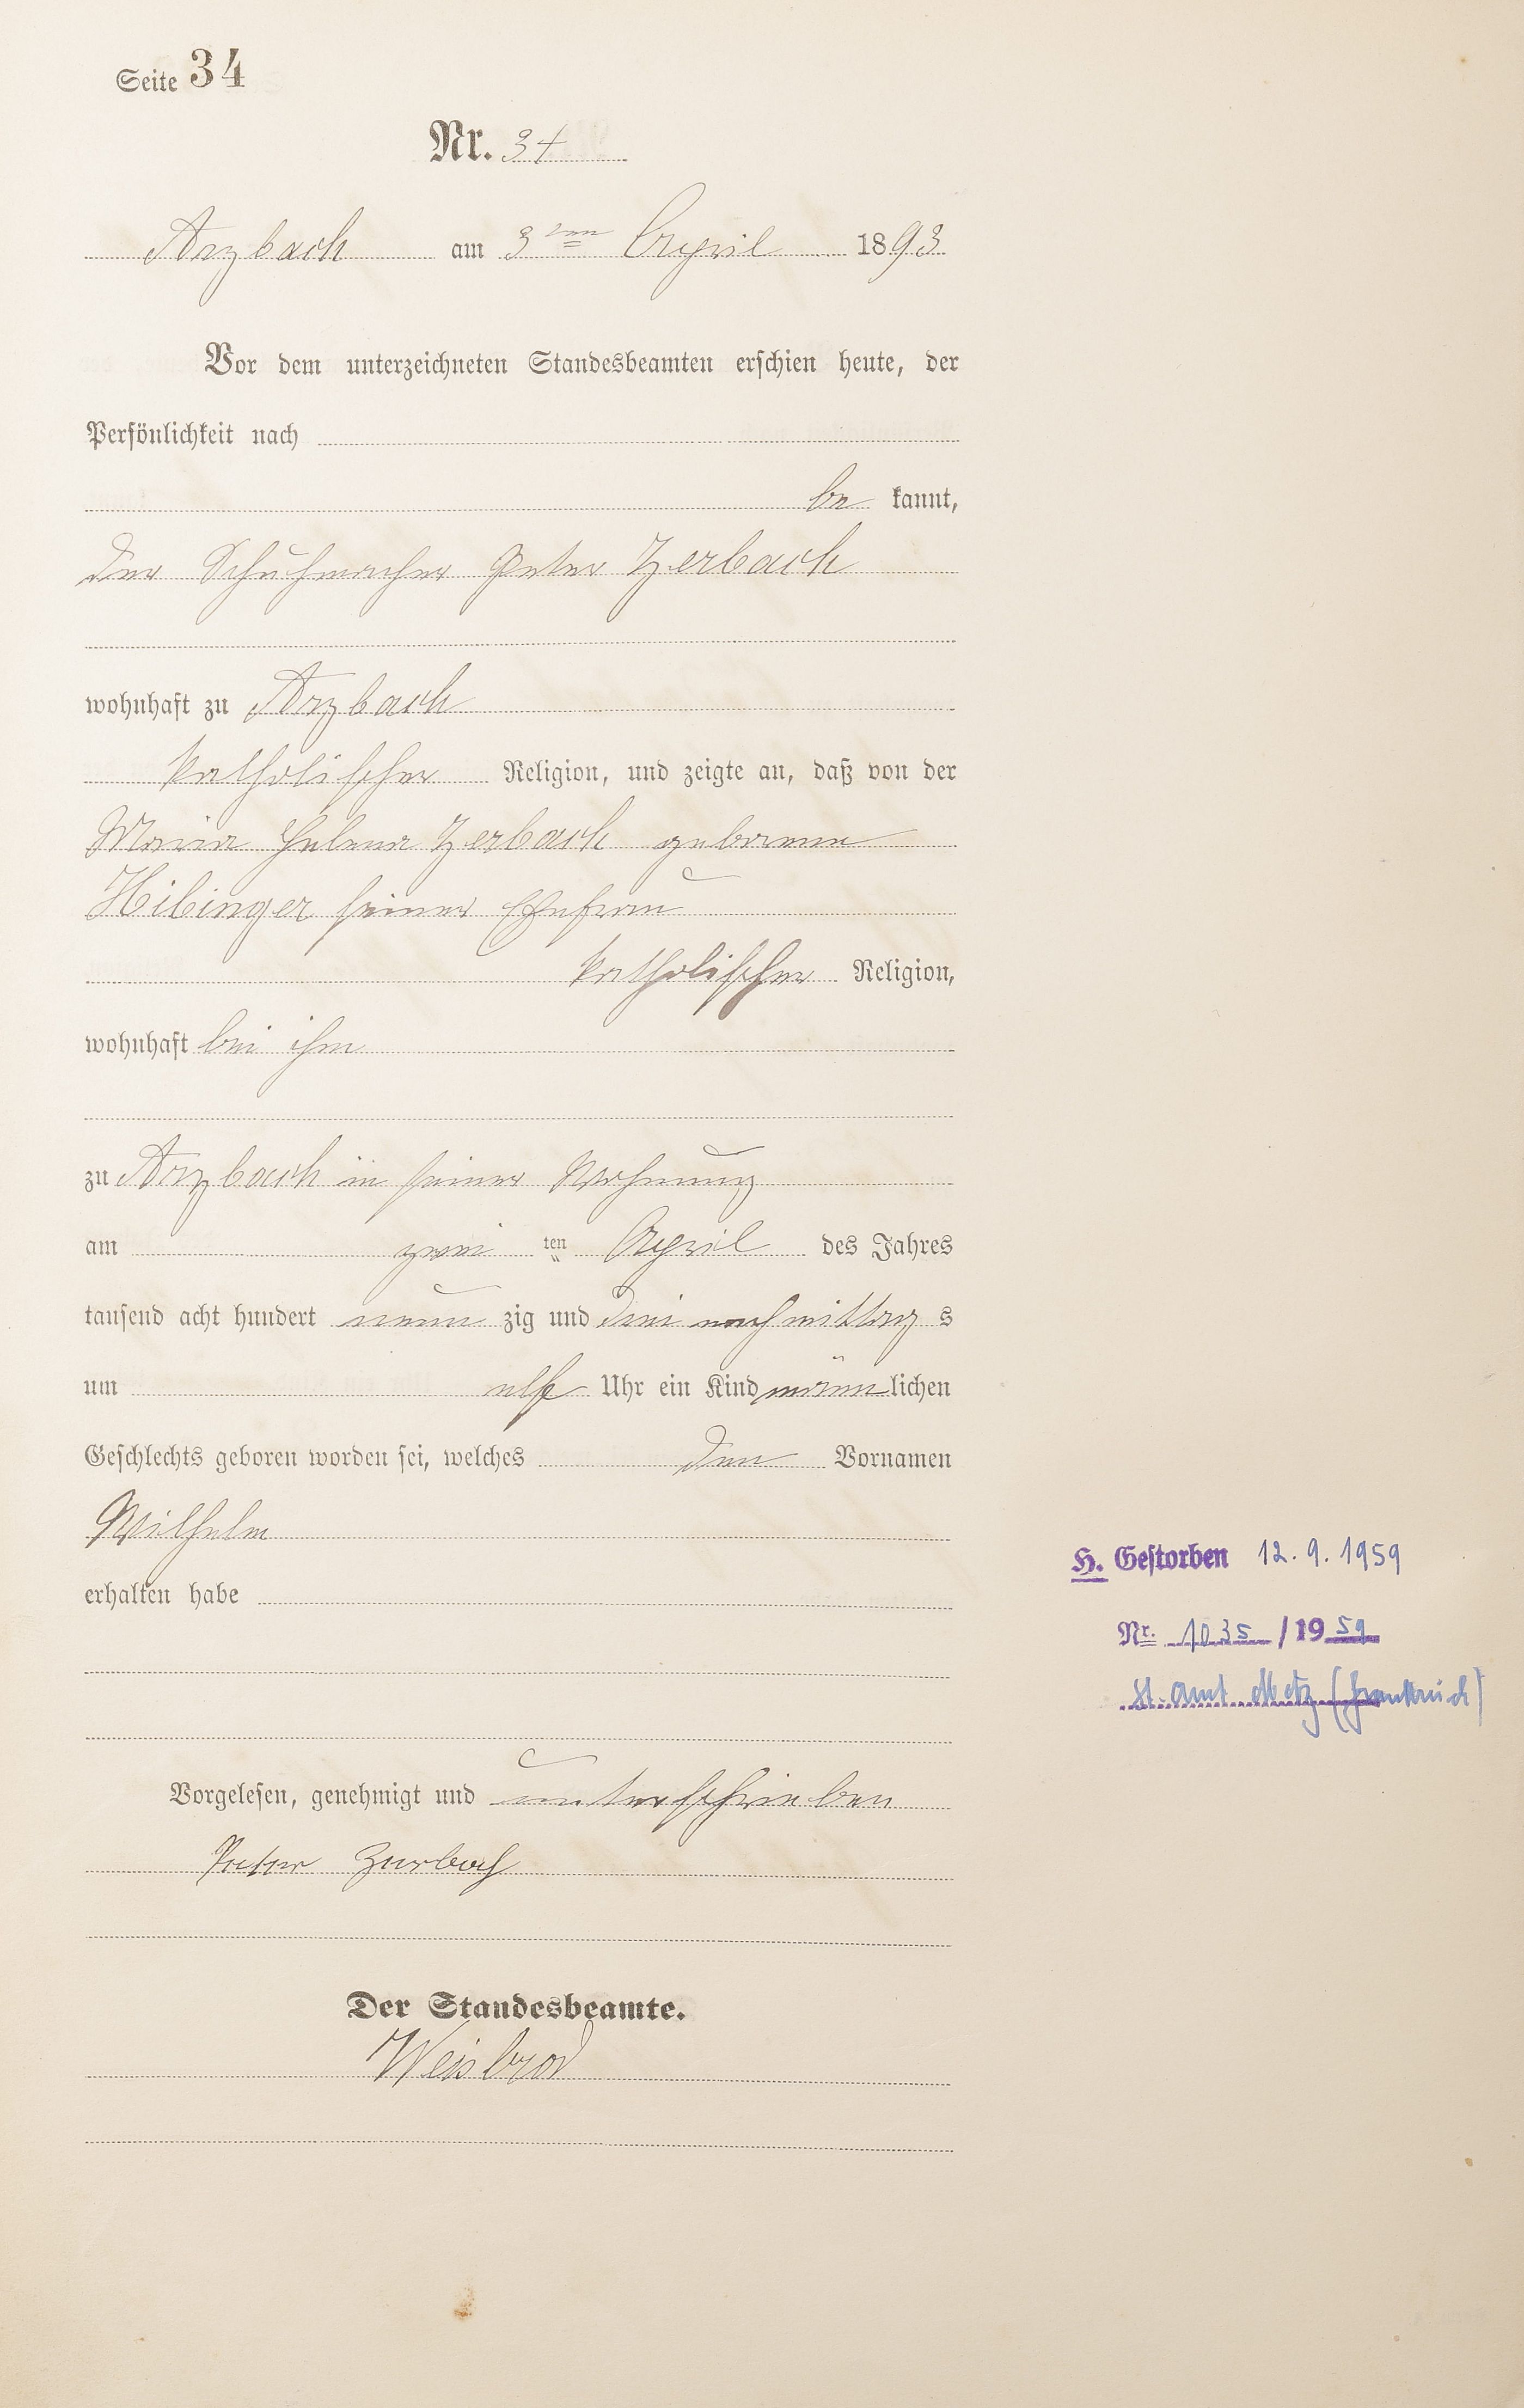 Seite 34
Nr. 34
Arzbach am 3ten April 1893
Vor dem unterzeichneten Standesbeamten erschien heute, der
Persönlichkeit nach
be kannt,
der Schuhmacher Peter Zerbach
wohnhaft zu Arzbach
katholischer Religion, und zeigte an, daß von der
Maria Helena Zerbach geborene
Hibinger seiner Ehefrau
katholischer Religion,
wohnhaft bei ihm
zu Arzbach in seiner Wohnung
am zwei ten April des Jahres
tausend acht hundert neun zig und drei nachmittag s
um elf Uhr ein Kind männlichen
Geschlechts geboren worden sei, welches den Vornamen
Wilhelm
erhalten habe
H. Gestorben 12.9.1959
Nr. 1035/1959
St.amt Metz (Frankreich)
Vorgelesen, genehmigt und unterschrieben
Peter Zerbach
Der Standesbeamte.
Weisbrod